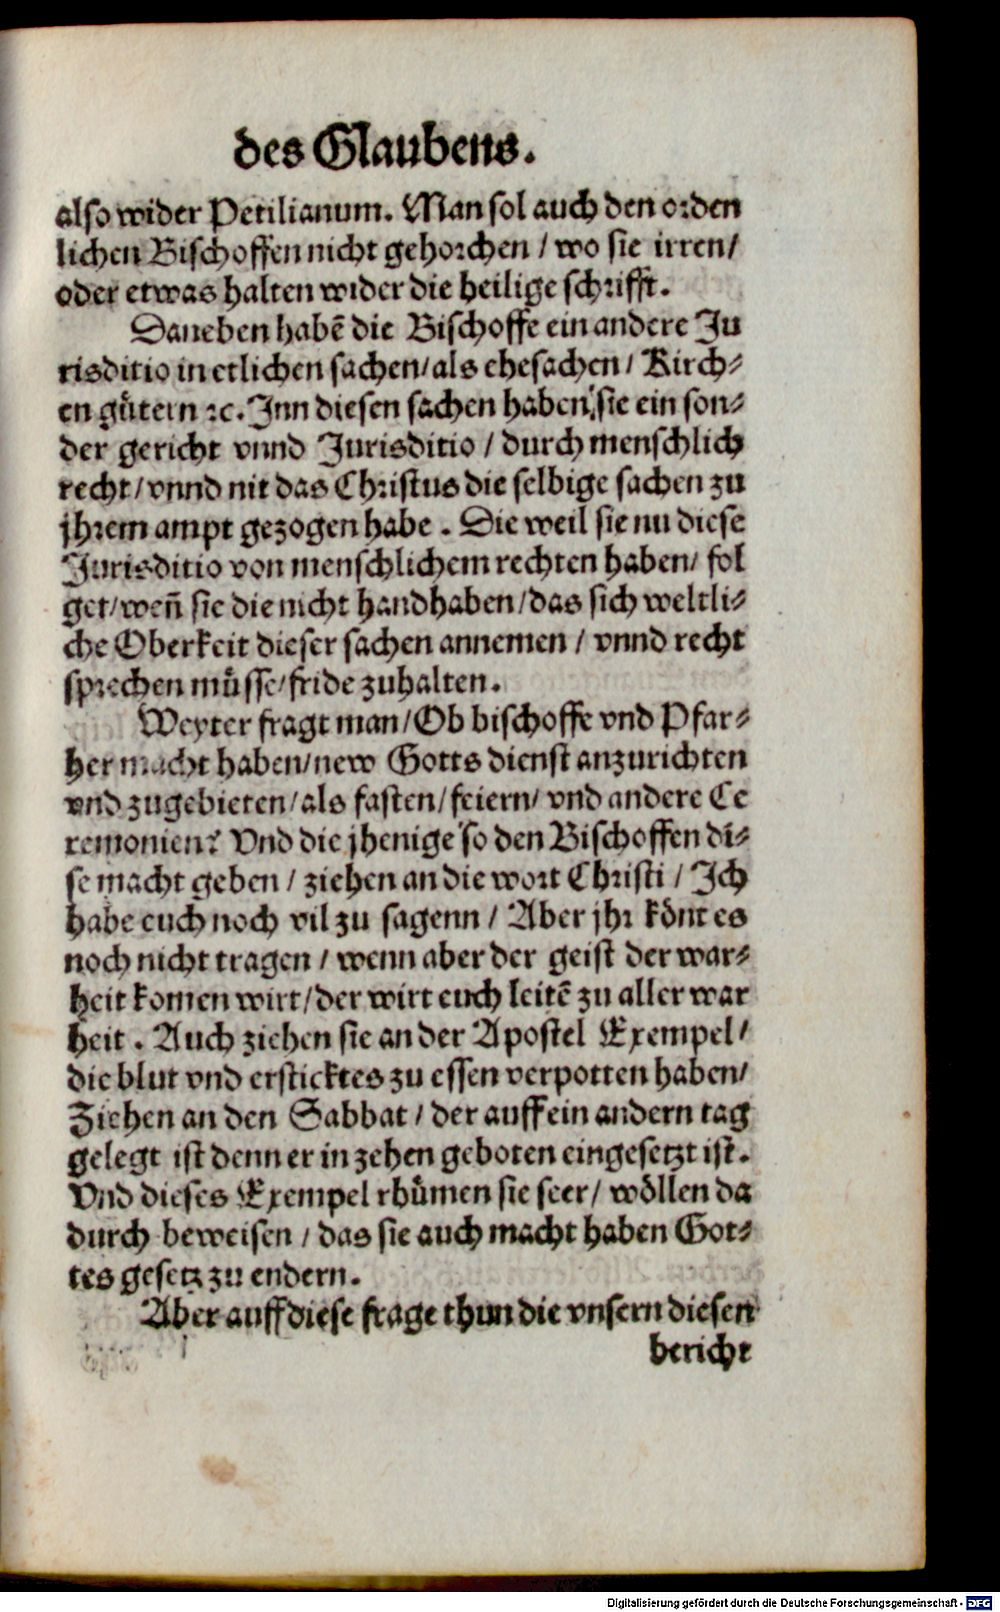 des Glaubens.
also wider Petilianum. Man sol auch den orden
lichen Bischoffen nicht gehorchen / wo sie irren/
oder etwas halten wider die heilige schrifft.
Daneben habē die Bischoffe ein andere Ju
risditio in etlichen sachen/als ehesachen/ Kirch⸗
en guͤtern ꝛc. Inn diesen sachen haben sie ein son⸗
der gericht vnnd Jurisditio / durch menschlich
recht/vnnd nit das Christus die selbige sachen zu
jhrem ampt gezogen habe . Die weil sie nu diese
Jurisditio von menschlichem rechten haben/ fol
get/weñ sie die nicht handhaben/das sich weltli⸗
che Oberkeit dieser sachen annemen / vnnd recht
sprechen muͤsse/fride zuhalten.
Weyter fragt man/Ob bischoffe vnd Pfar⸗
her macht haben/new Gotts dienst anzurichten
vnd zugebieten/als fasten/feiern/ vnd andere Ce
remonien? Vnd die jhenige so den Bischoffen di⸗
se macht geben / ziehen an die wort Christi / Ich
habe euch noch vil zu sagenn / Aber jhr koͤnt es
noch nicht tragen / wenn aber der geist der war⸗
heit komen wirt/der wirt euch leitē zu aller war
heit . Auch ziehen sie an der Apostel Exempel/
die blut vnd ersticktes zu essen verpotten haben/
Ziehen an den Sabbat / der auff ein andern tag
gelegt ist denn er in zehen geboten eingesetzt ist.
Vnd dieses Exempel rhuͤmen sie seer/ woͤllen da
durch beweisen / das sie auch macht haben Got⸗
tes gesetz zu endern.
Aber auff diese frage thun die vnsern diesen
bericht
Digitalisierung gefördert durch die Deutsche Forschungsgemeinschaft - DFG